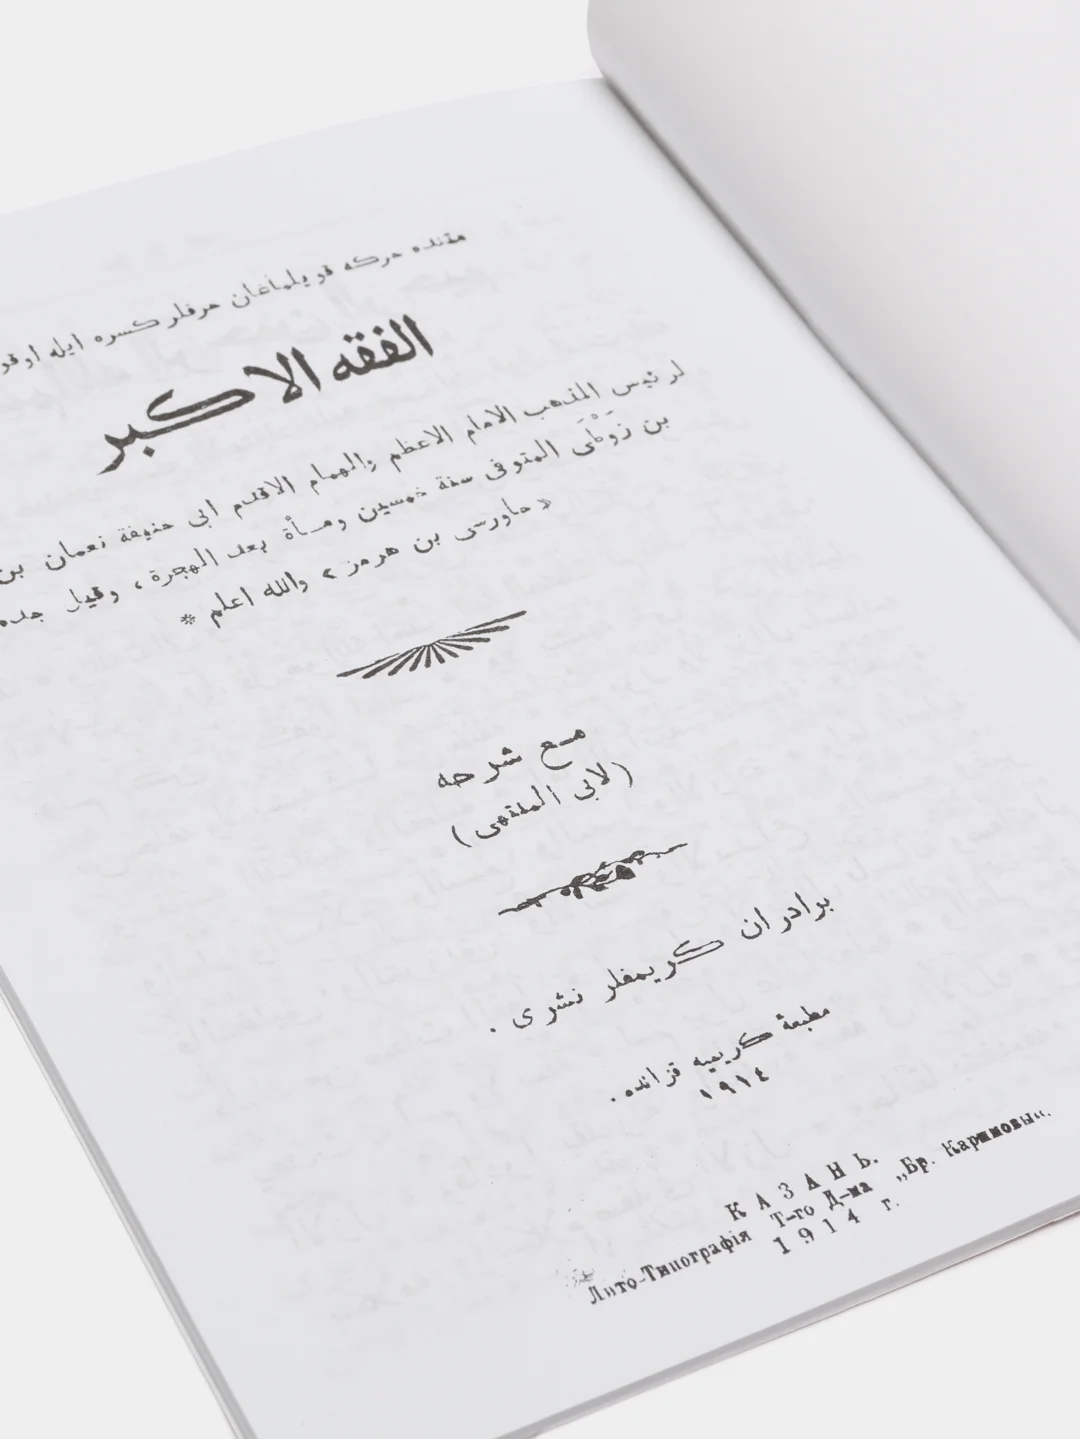 متنده حركه قويلماغان حرفلر كسره ايله اوقو
الفقه الاكبر
لرئيس المذهب الامام الاعظم والهمام الاقدم ابى حنيفة نعمان بن
بن زَوْطَى المتوفى سنة خمسين ومأة بعد الهجرة، وقيل جده
«ماورسى بن هرمز» والله اعلم *
مع شرحه
(لابى المنتهى)
برادران كريمفلر نشرى.
مطبعۀ كريميه قزانده.
١٩١٤
КАЗАНЬ.
Лито-Типографія Т-го Д-ма „Бр. Каримовы“.
1914 г.